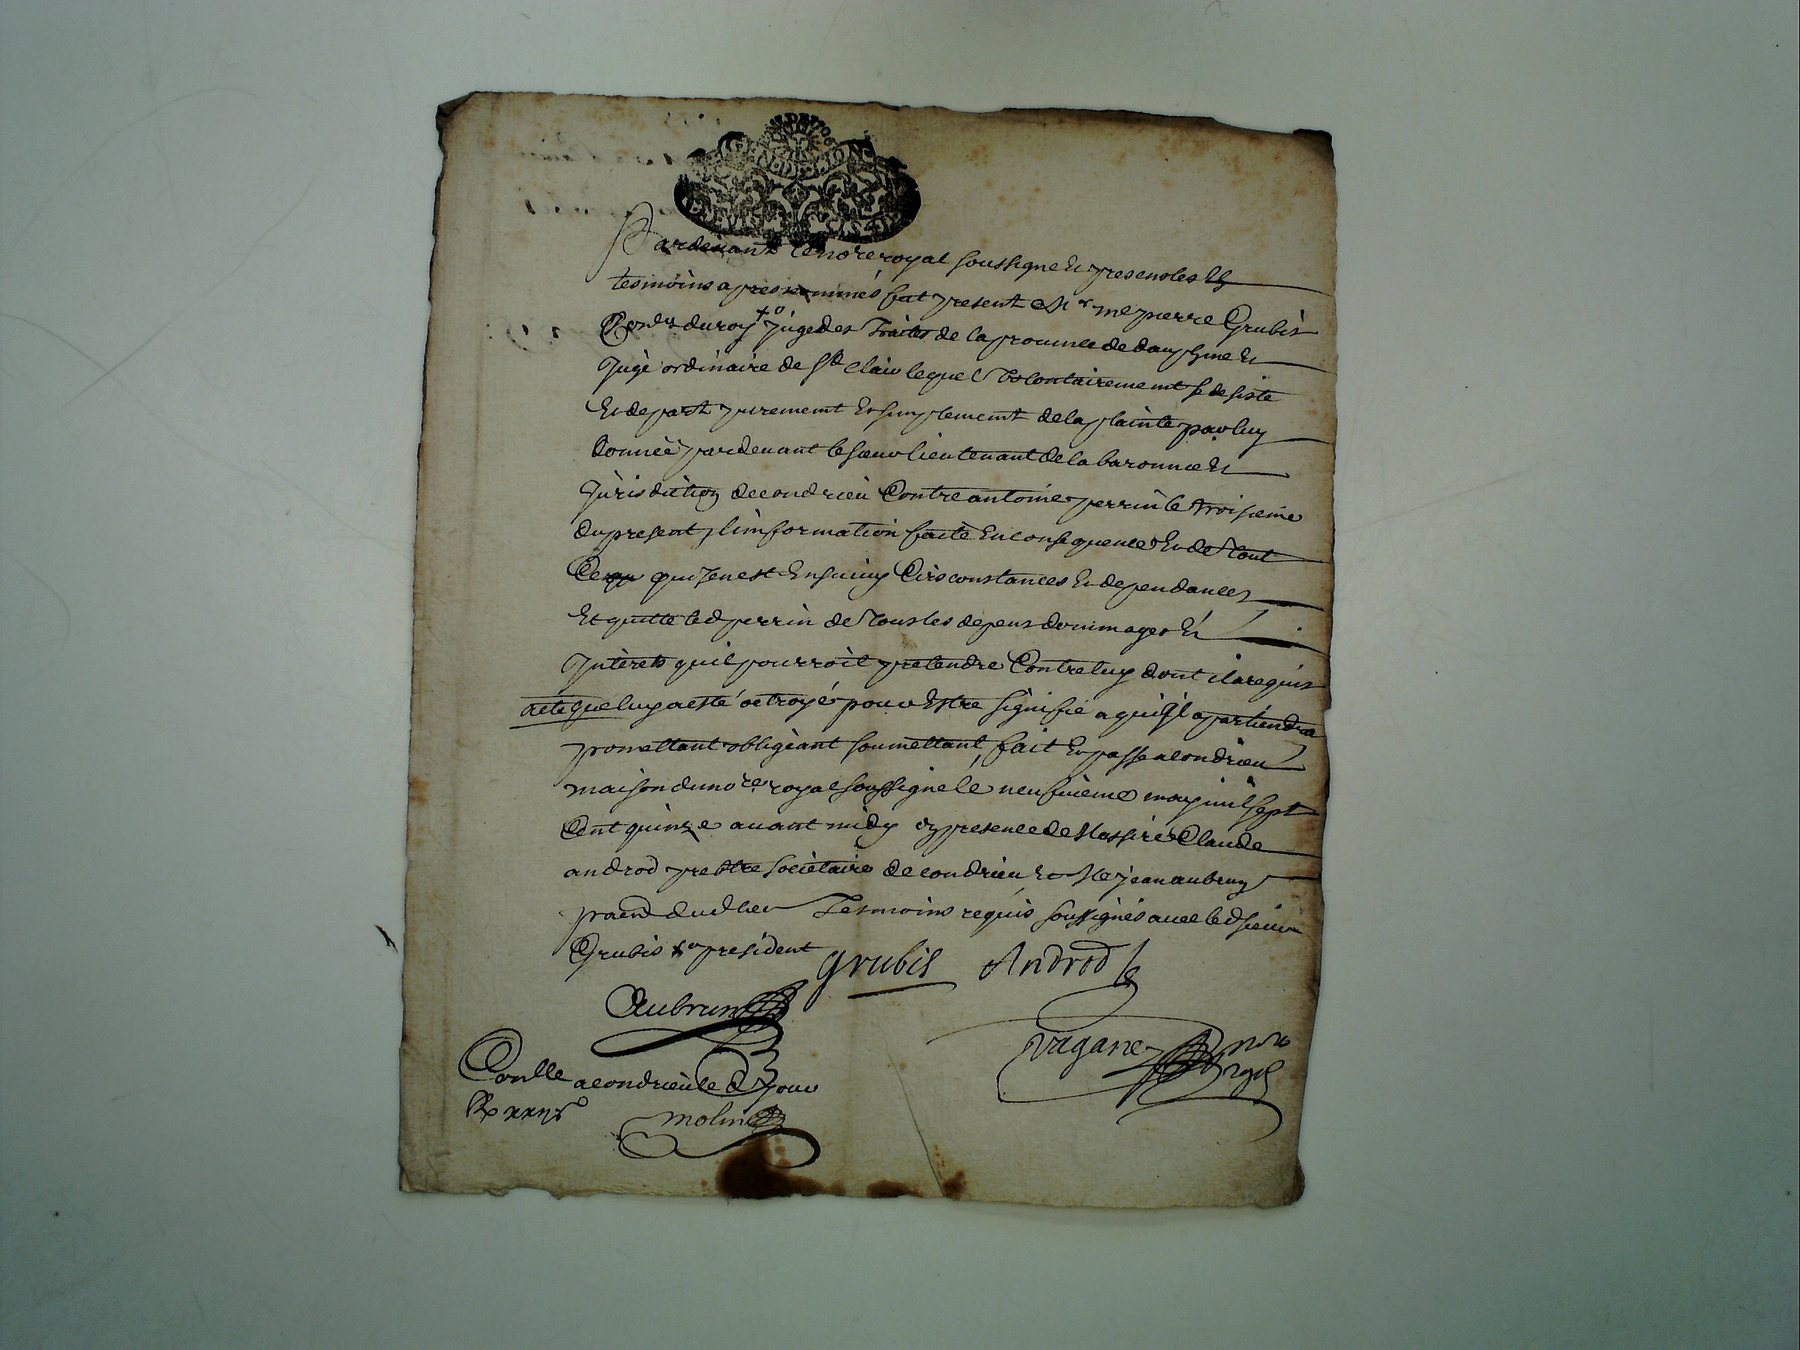 Pardevant le no.re royal soussigne et presens les
tesmoins apres nommés fut present Mr me pierre Grubis
Con.er du roy +o juge des traites de la province de dauphine et
juge ordinaire de St Clair lequel volontairement se desiste
et depart purement et simplement de la plainte par luy
donnée pardevant le sieur lieutenant de la baronnie et
jurisdiction de condrieu Contre antoine perrin le troisieme
du present, l'information faite en consequence et de tout
Ce qui s'en est ensuivy Circonstances et dependances
Et quitte led perrin de tous les depens dommages et
jnterets quil pourroit pretendre Contre luy dont il a requis
acte que luy a esté octroyé pour Estre signifie a qui Jl apartiendra
promettant obligeant soumettant, fait et passe a condrieu
maison du no.re royal soussigne le neufvieme may mil sept
Cent quinze avant midy en presence de Messire Claude
androd prestre societaire de condrieu et Me jean aubrun
pacn dud lieu Tesmoins requis soussignés avec led sieur
Grubis +o president Grubis Androd
Aubrun
nore
Conlle a condrieu le d jour
royal
molin